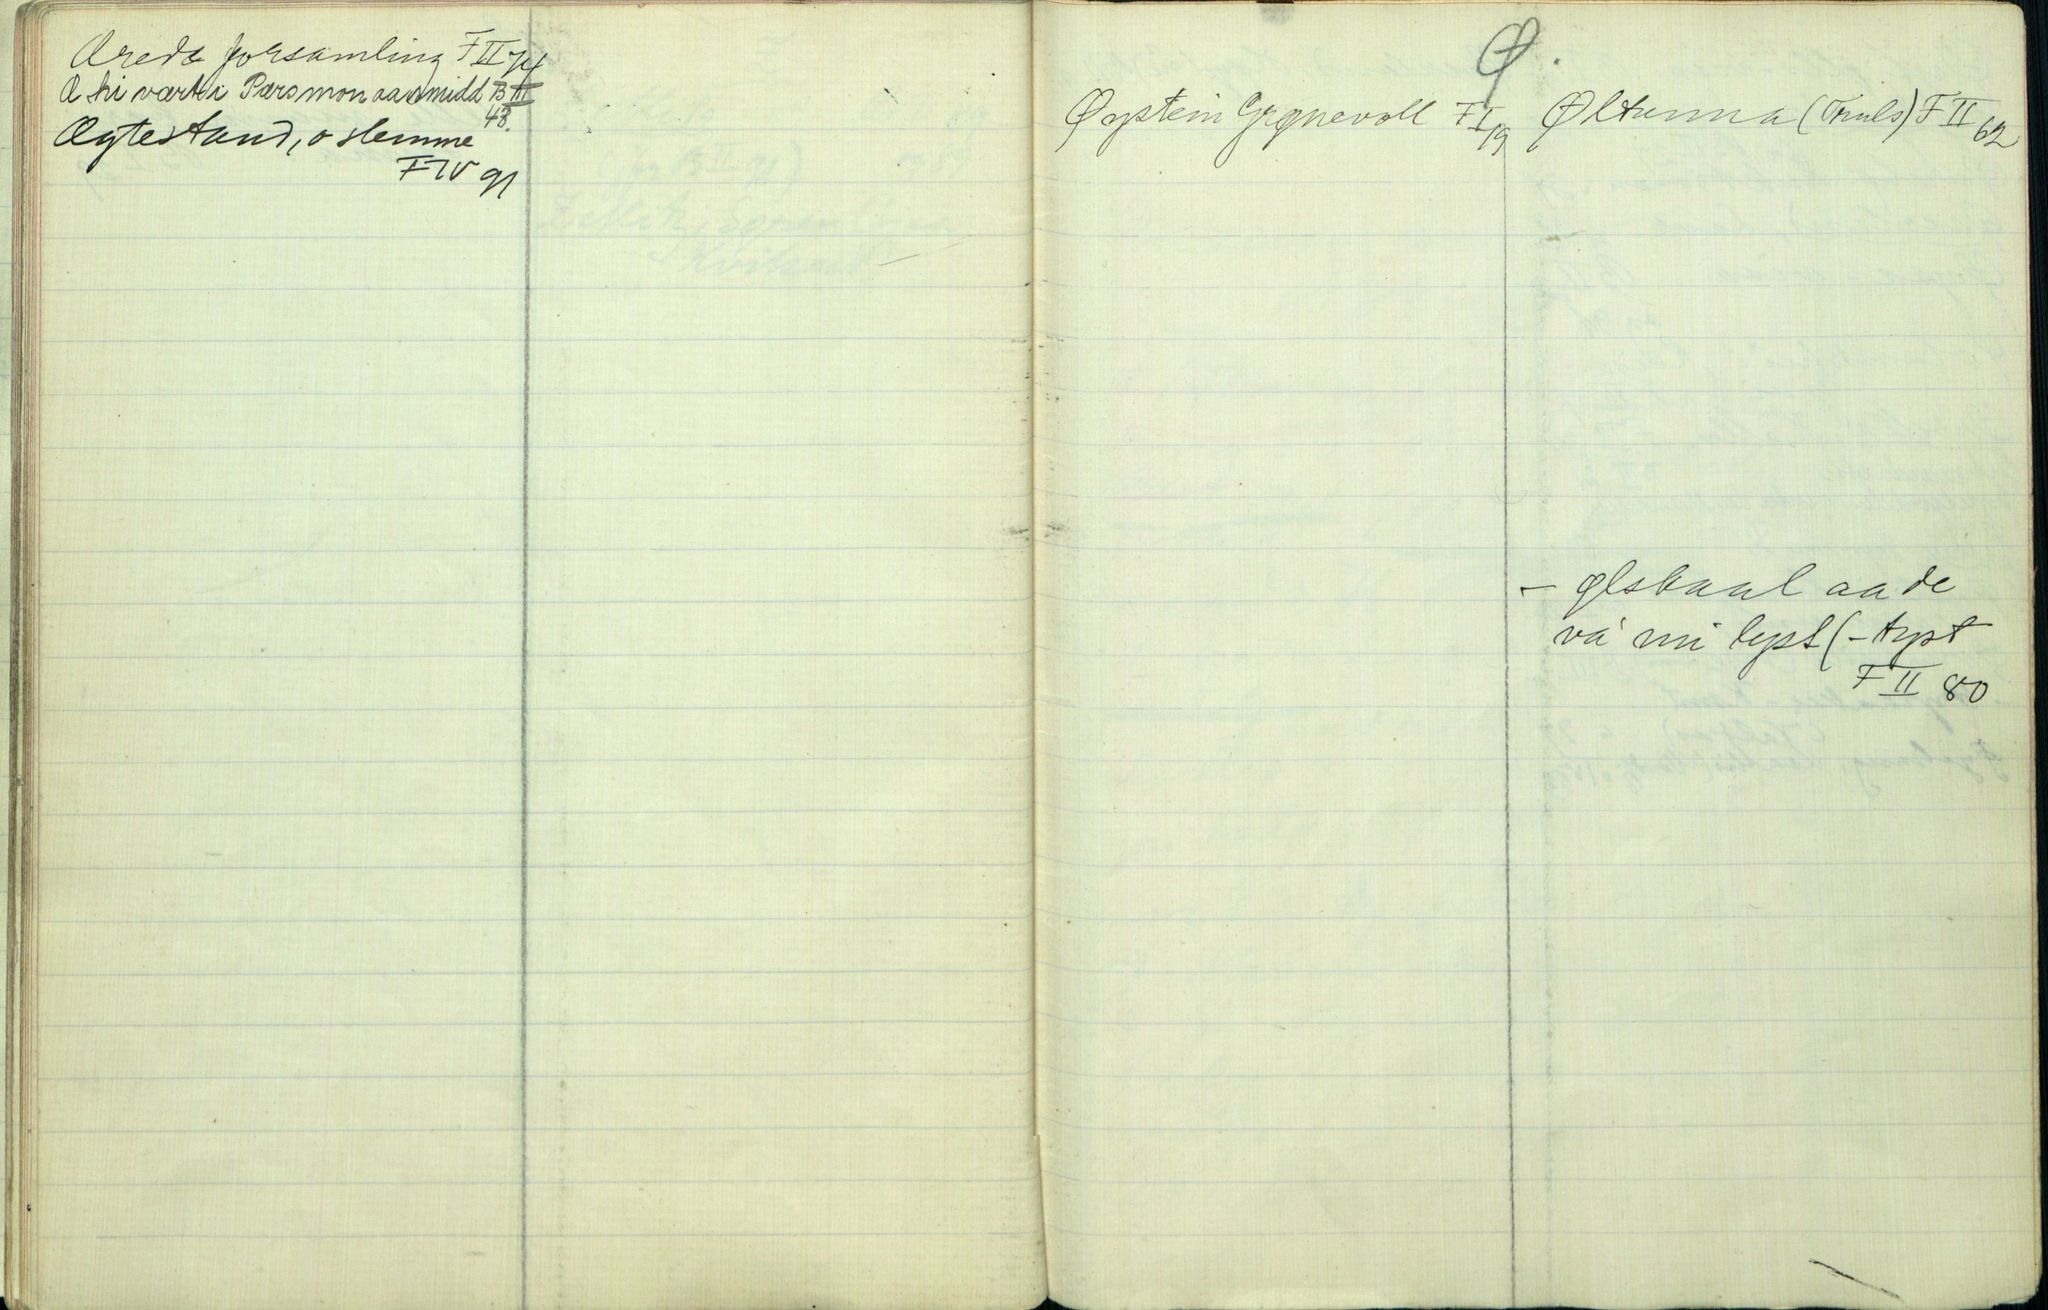 Æreda forsamling F II 74
Æ hi værti Parsmonaasmidd B III
48.
Ægtestand, o slemme
F IV 91
Ø.
Øystein Grønevoll F I 19
Øltunna (Truls) F II 62
– ølskaal aa de
va' mi lyst (– tyst
F II 80